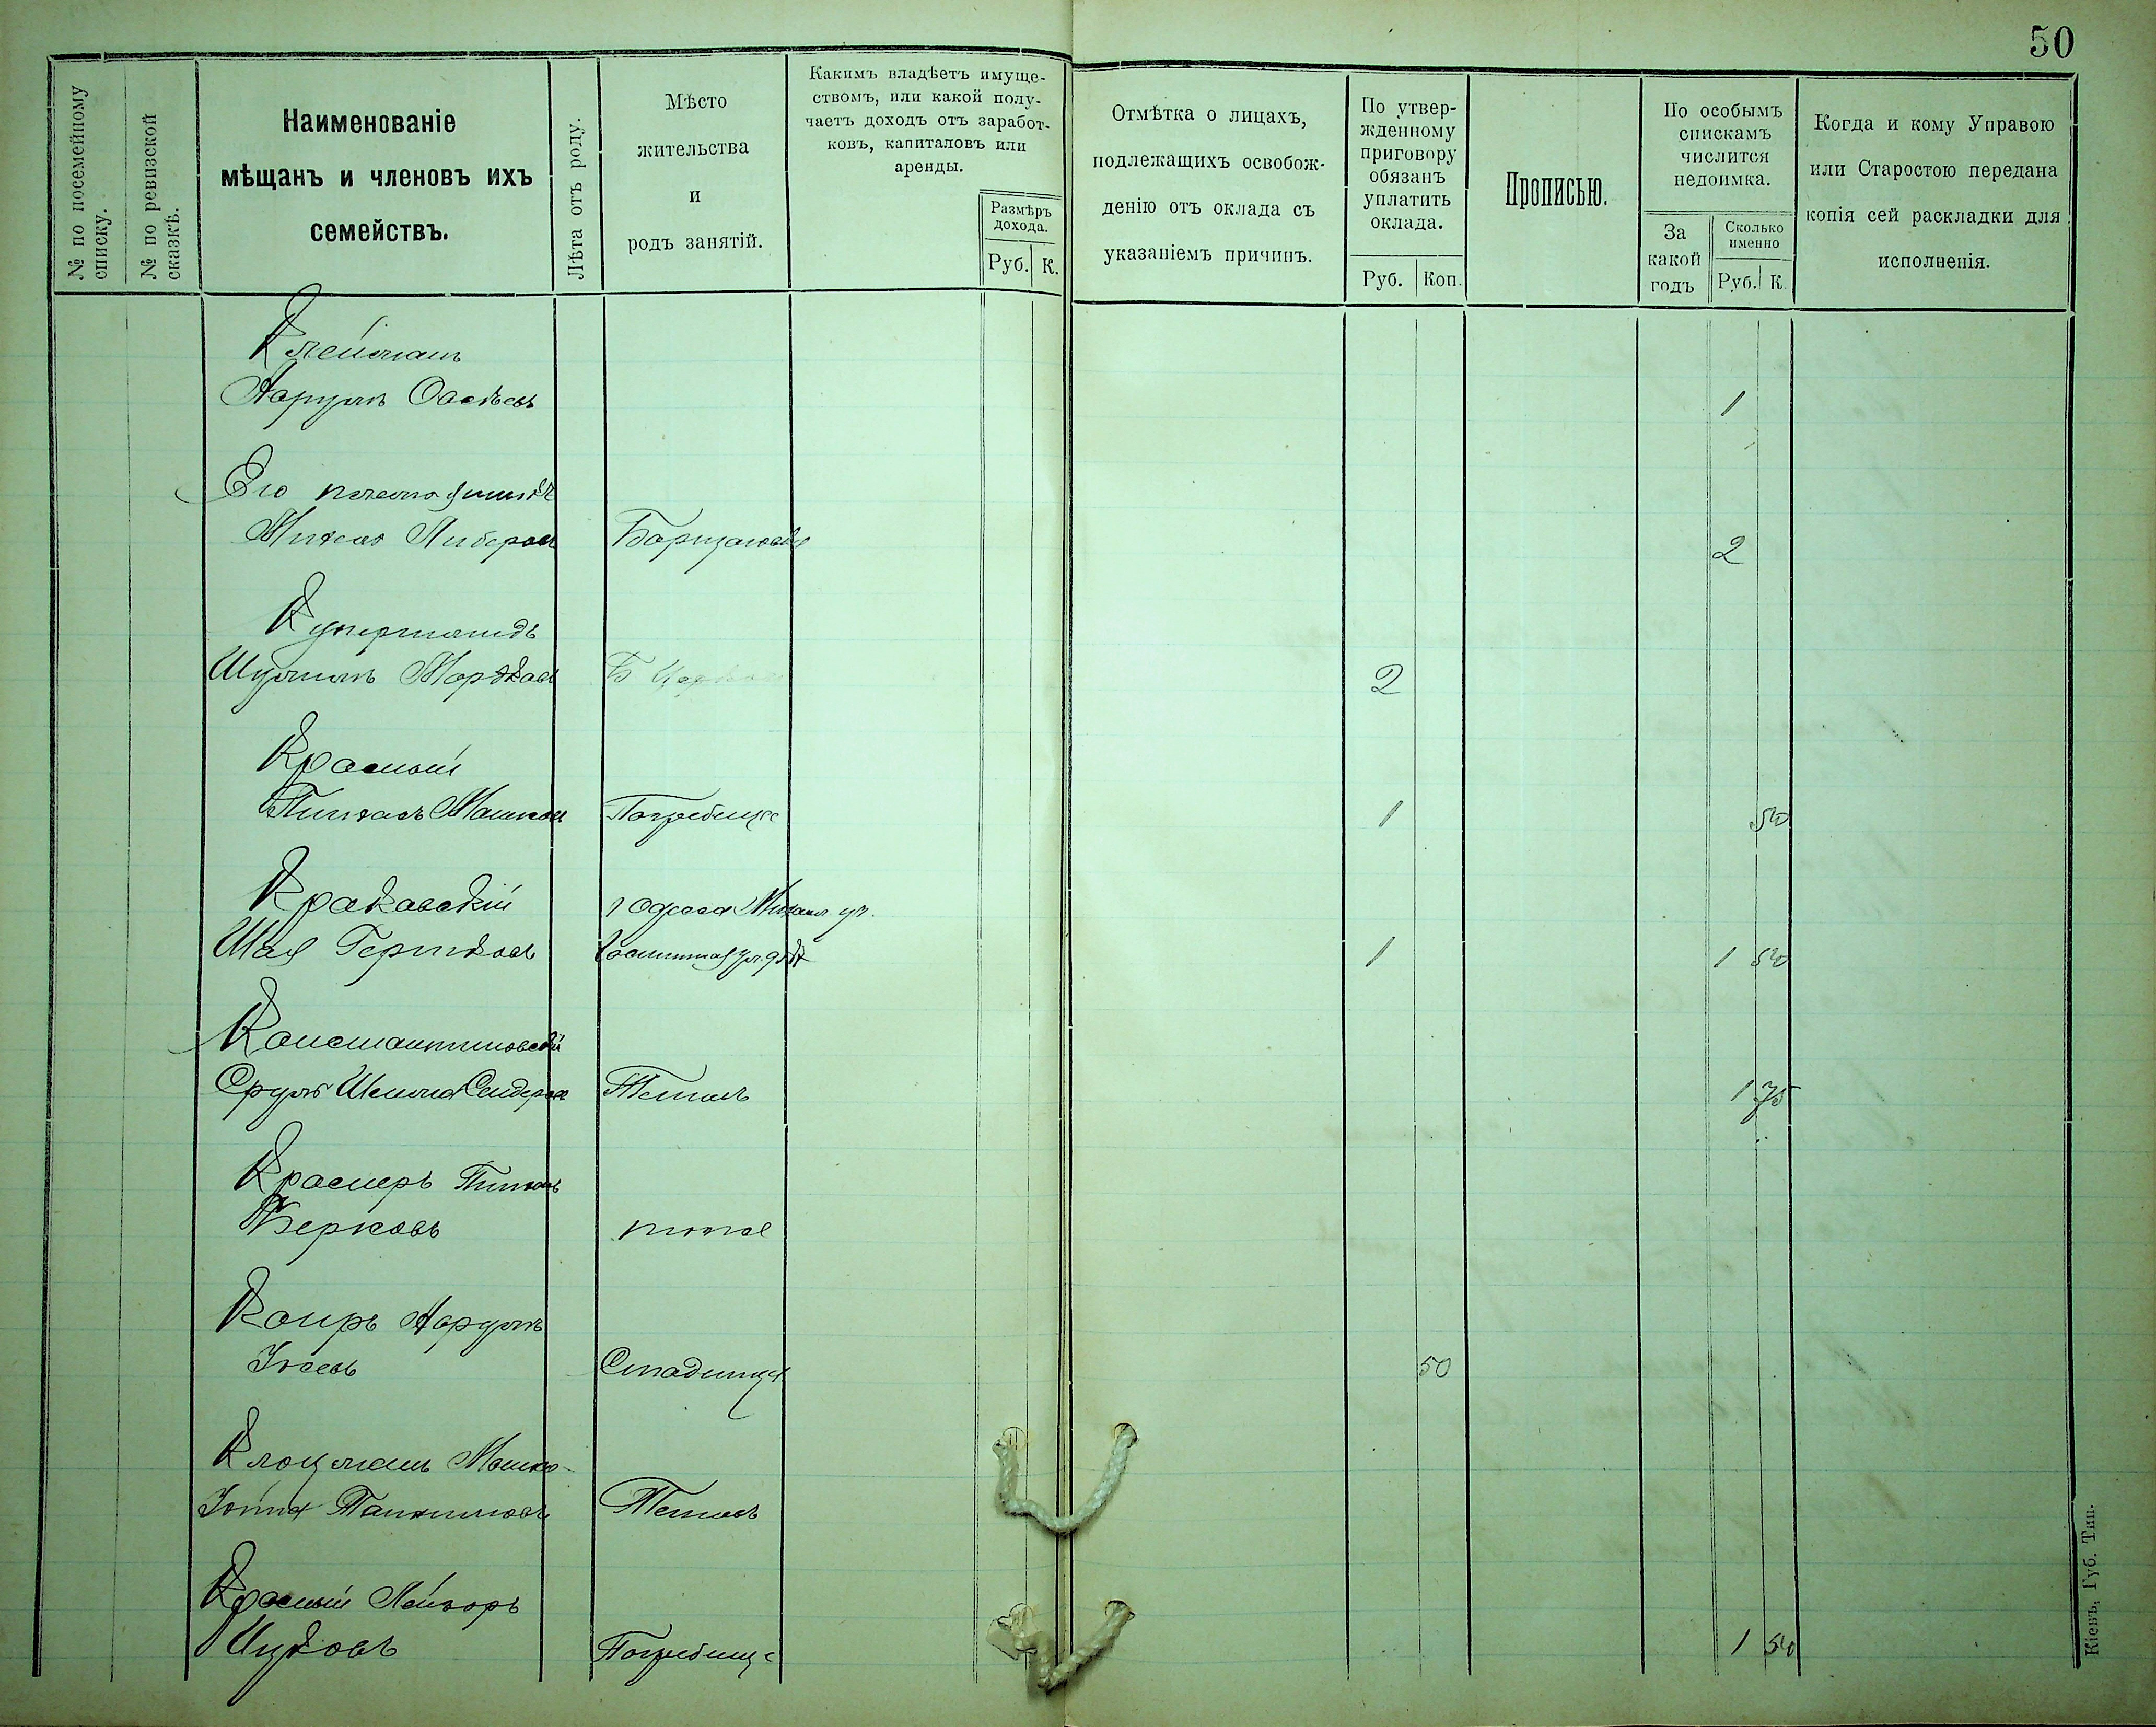 50
№ по посемейному списку.
№ по ревизской сказкѣ.
Наименованіе
мѣщанъ и членовъ ихъ
семействъ.
Лѣта отъ роду.
Мѣсто
жительства
и
родъ занятій.
Какимъ владѣетъ имуще-
ствомъ, или какой полу-
чаетъ доходъ отъ заработ-
ковъ, капиталовъ или
аренды.
Размѣръ
дохода.
Руб. К.
Отмѣтка о лицахъ,
подлежащихъ освобож-
денію отъ оклада съ
указаніемъ причинъ.
По утвер-
жденному
приговору
обязанъ
уплатить
оклада.
Руб. Коп.
Прописью.
По особымъ
спискамъ
числится
недоимка.
За
какой
годъ
Сколько
именно
Руб. К.
Когда и кому Управою
или Старостою передана
копія сей раскладки для
исполненія.
Клейман
Нарумъ 1
Его племянникъ
2
Шулимъ Мордков Б Церковь 2
Красный
Пинхасъ Мошков Погребище 1 50
Краковскій г Одесса
Шая Гершковъ 1 1 50
Константиновскій
Сруль Сендеров Тетіевъ 1 75
Красперъ Пинхас
Берковъ тоже
Нарумъ
Іосевъ Стадница 50
Клоцман Мошко-
Іойна Тетіевъ
Красный Лейзоръ
Ицковъ Погребище 1 50
Кіевъ, Губ. Тип.